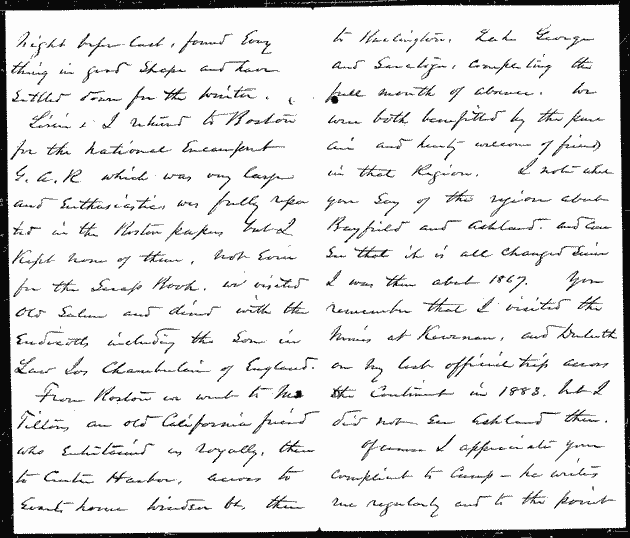 Night before last, found Every
thing in good Shape and have
Settled down for the winter.
Lizzie & I returned to Boston
for the National Encampment
G.A.R which was very large
and Enthusiastic was fully repor
ted in the Boston papers but I
Kept none of them, not Even
for the Scrap Book. we visited
Old Salem and dined with the
Endicotts including the Son in
Law Jos Chamberlain of England.
From Boston we went to Mr
Tiltons an old California friend
who Entertained us royally, then
to Center Harbor, across to
home Windsor Vt, then
to Burlington. Lake George
and Saratoga, completing the
full month of absence. We
were both benefitted by the pure
air and hearty welcome of friends
in that Region. I note what
you Say of the region about
Bayfield and Ashland. and can
See that it is all changed Since
I was there about 1867. You
remember that I visited the
Mines at Kewenaw, and Duluth
on my last official trip across
the Continent in 1883. but I
did not See Ashland then.
Of course I appreciate your
compliment to Cump - he writes
me regularly and to the point